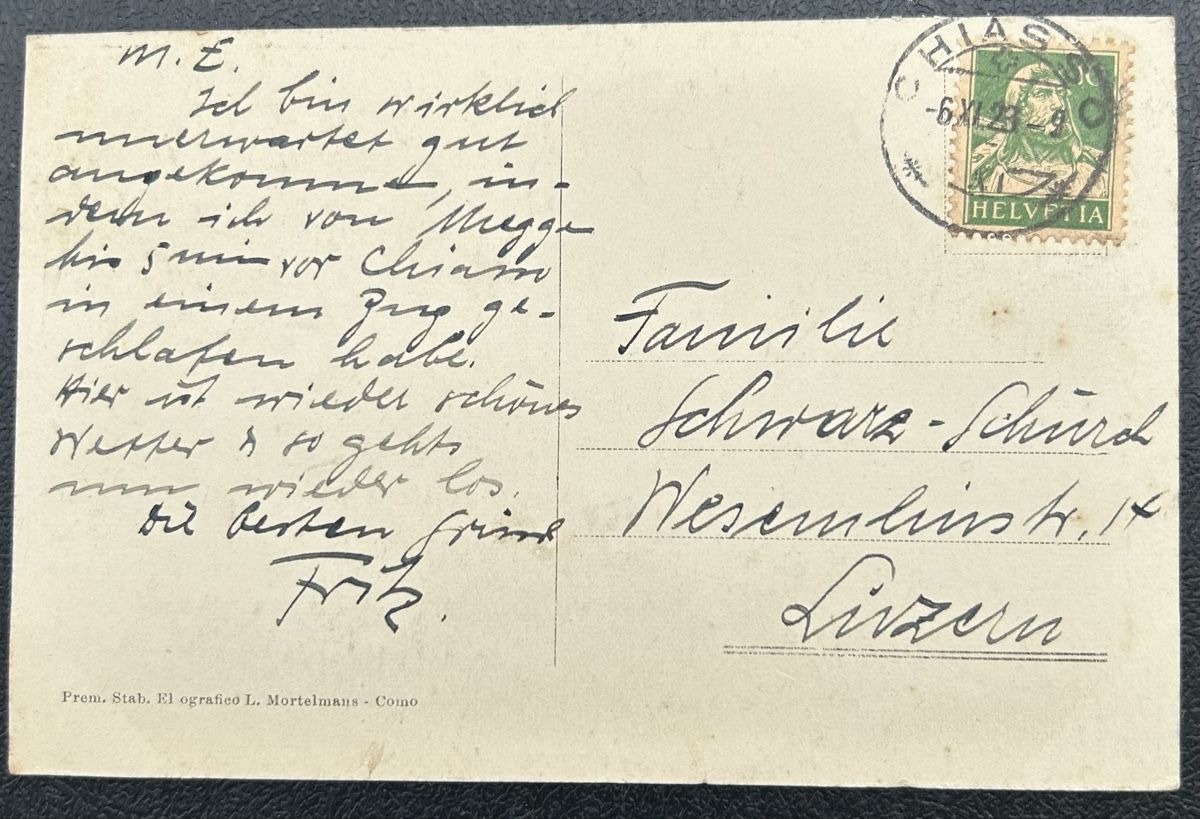 M. E.
Ich bin wirklich
unerwartet gut
angekommen, in-
dem ich von Megge
bis 5 min vor Chiasso
in einem Zug ge-
schlafen habe.
Hier ist wieder schönes
Wetter & so gehts
nun wieder los.
Die besten Grüsse
Fritz.
Prem. Stab. El ografico L. Mortelmans - Como
CHIASSO
-6.XI.23-9
XI
HELVETIA
Familie
Schwarz-Schürch
Wesemlinstr. 14
Luzern